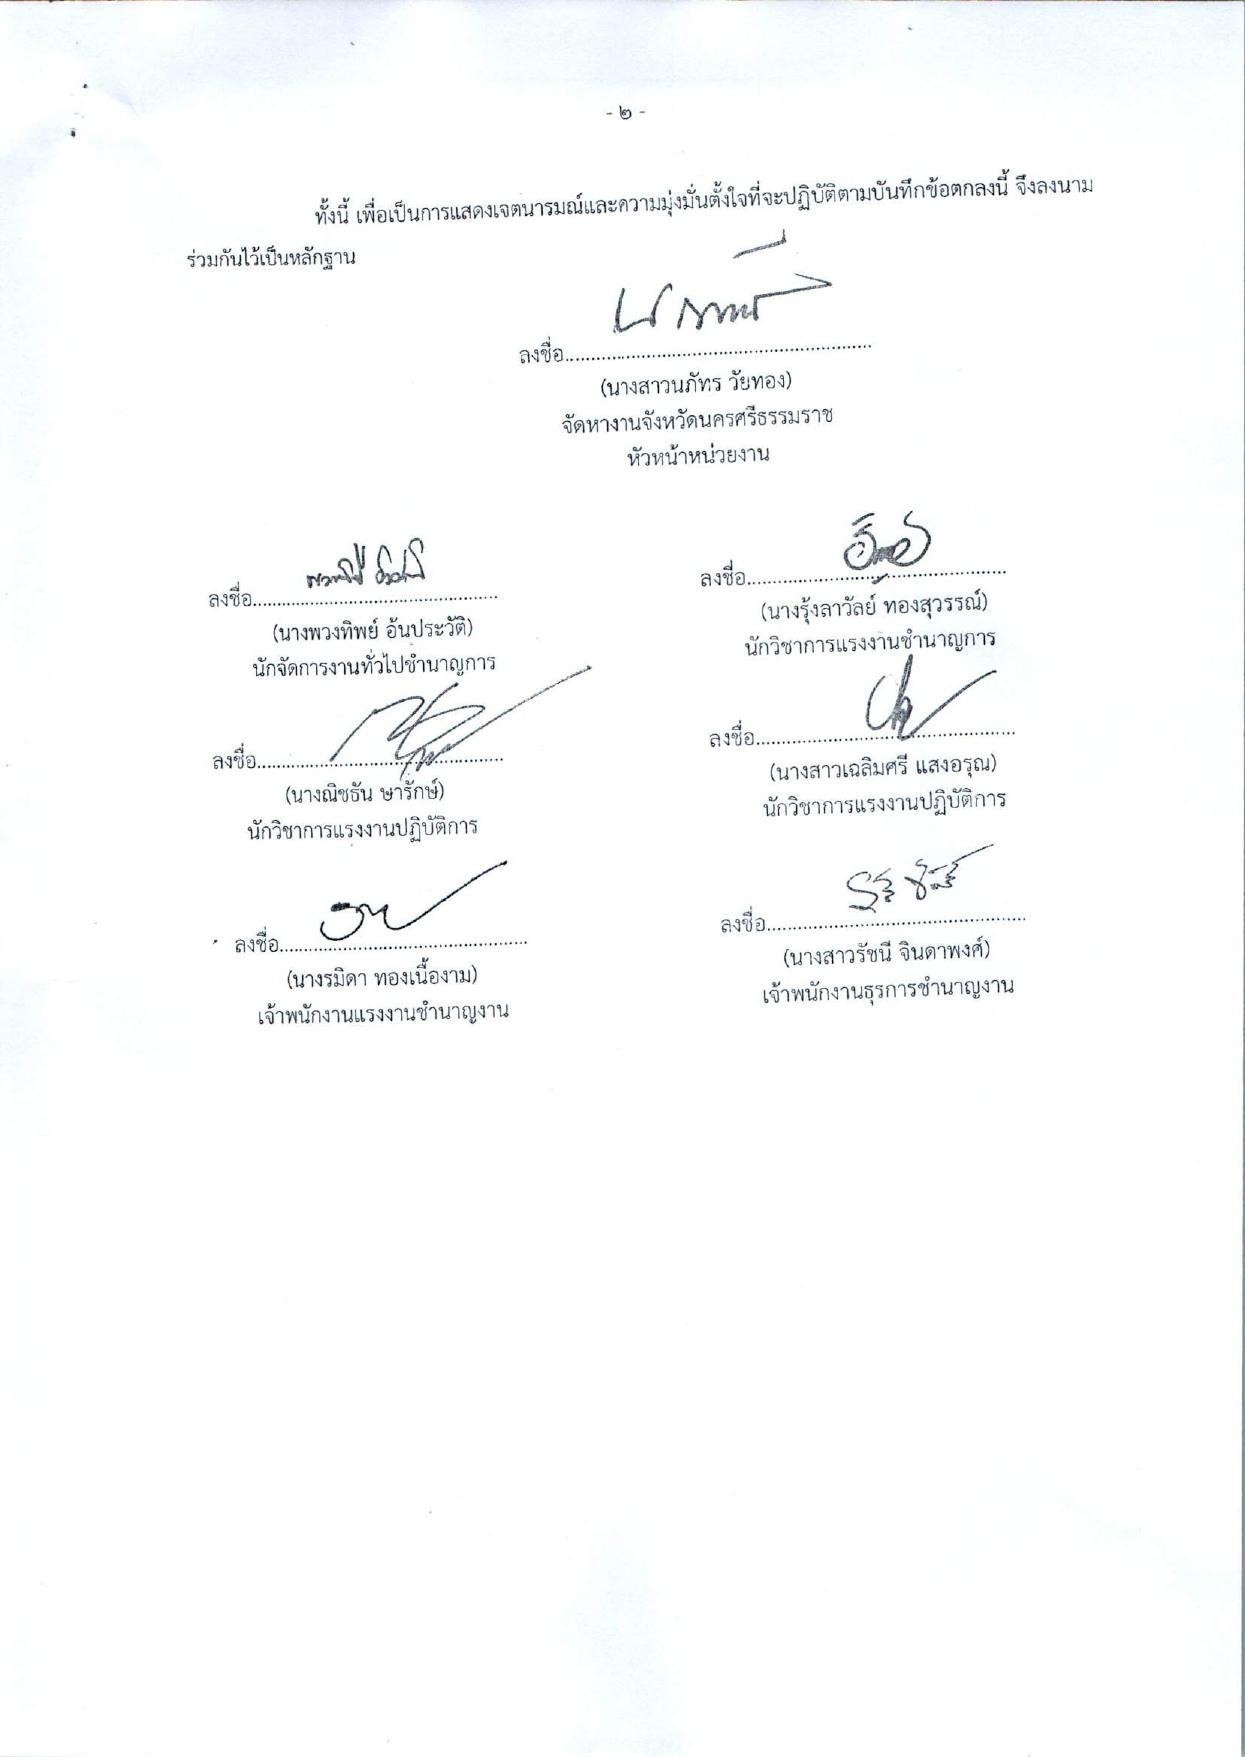 - ๒ -
ทั้งนี้ เพื่อเป็นการแสดงเจตนารมณ์และความมุ่งมั่นตั้งใจที่จะปฏิบัติตามบันทึกข้อตกลงนี้ จึงลงนาม
ร่วมกันไว้เป็นหลักฐาน
ลงชื่อ............................................................
(นางสาวนภัทร วัยทอง)
จัดหางานจังหวัดนครศรีธรรมราช
หัวหน้าหน่วยงาน
ลงชื่อ................................................
(นางพวงทิพย์ อ้นประวัติ)
นักจัดการงานทั่วไปชำนาญการ
ลงชื่อ...................................................
(นางรุ้งลาวัลย์ ทองสุวรรณ์)
นักวิชาการแรงงานชำนาญการ
ลงชื่อ................................................
(นางณิชธัน ษารักษ์)
นักวิชาการแรงงานปฏิบัติการ
ลงชื่อ...................................................
(นางสาวเฉลิมศรี แสงอรุณ)
นักวิชาการแรงงานปฏิบัติการ
ลงชื่อ................................................
(นางรมิดา ทองเนื้องาม)
เจ้าพนักงานแรงงานชำนาญงาน
ลงชื่อ...................................................
(นางสาวรัชนี จินดาพงศ์)
เจ้าพนักงานธุรการชำนาญงาน